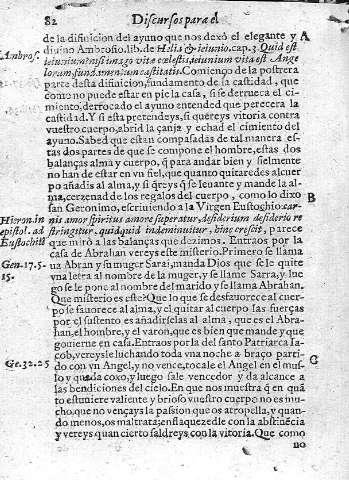 82 Discursos para el
de la difinicion del ayuno que nos dexò el elegante y A
Ambros. diuino Ambrosio.lib. de Helia & ieiunio.cap.3 Quid est
ieiunium nisi imago vitæ cælestis, ieiunium vita est Ange
lorum, fundamentum castitatis. Comienço de la postrera
parte desta difinicion, fundamento de la castidad, que
como no puede estar en pie la casa, si se derrueca el ci-
miento, derrocado el ayuno entended que perecera la
castidad. Y si esta pretendeys, si quereys vitoria contra
vuestro cuerpo, abrid la çanja y echad el cimiento del
ayuno. Sabed que estan compasadas de tal manera es-
tas dos partes de que se compone el hombre, estas dos
balanças alma y cuerpo, q̃ para andar bien y fielmente
no han de estar en vn fiel, que quanto quitaredes al cuer
po añadis al alma, y si q̃reys q̃ se leuante y mande la al-
ma, cerzenad de los regalos del cuerpo, como lo dixo B
san Geronimo, escriuiendo a la Virgen Eustoghio: car-
Hieron. in nis amor spiritus amore superatur, desiderium desiderio re
epistol. ad stringitur. quidquid indeminuitur, hinc crescit, parece
Eustochiũ que mirò a las balanças que dezimos. Entraos por la
casa de Abrahan vereys este misterio. Primero se llama
Gen. 17.5. ua Abran y su muger Sarai, manda Dios que se le quite
15. vna letra al nombre de la muger, y se llame Sarra, y lue
go se le pone al nombre del marido y se llama Abrahan.
Que misterio es este? Que lo que se desfauorece al cuer
po se fauorece al alma, y el quitar al cuerpo las fuerças
por el sustento es añadirselas al alma, que es el Abra-
han, el hombre, y el varon, que es bien que mande y que
gouierne en casa. Entraos por la del santo Patriarca Ia
Ge. 32.25 cob, vereysle luchando toda vna noche a braço parti- C
do con vn Angel, y no vence, tocale el Angel en el mus-
lo y queda coxo, y luego sale vencedor y da alcance a
las bendiciones del cielo. En que nos muestra q̃ en quã
to estuuiere valiente y brioso vuestro cuerpo no es mu-
cho, que no vençays la passion que os atropella, y quan-
do menos, os maltrata; enflaquezedle con la abstinẽcia
y vereys quan cierto saldreys con la vitoria. Que como
no